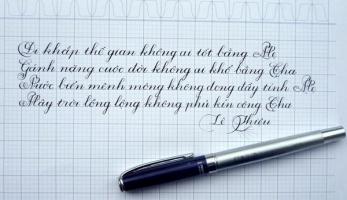 Đi khắp thế gian không ai tốt bằng Mẹ
Gánh nặng cuộc đời không ai khổ bằng Cha
Nước biển mênh mông không đong đầy tình Mẹ
Mây trời lồng lộng không phủ kín công Cha
Lê Thiêu